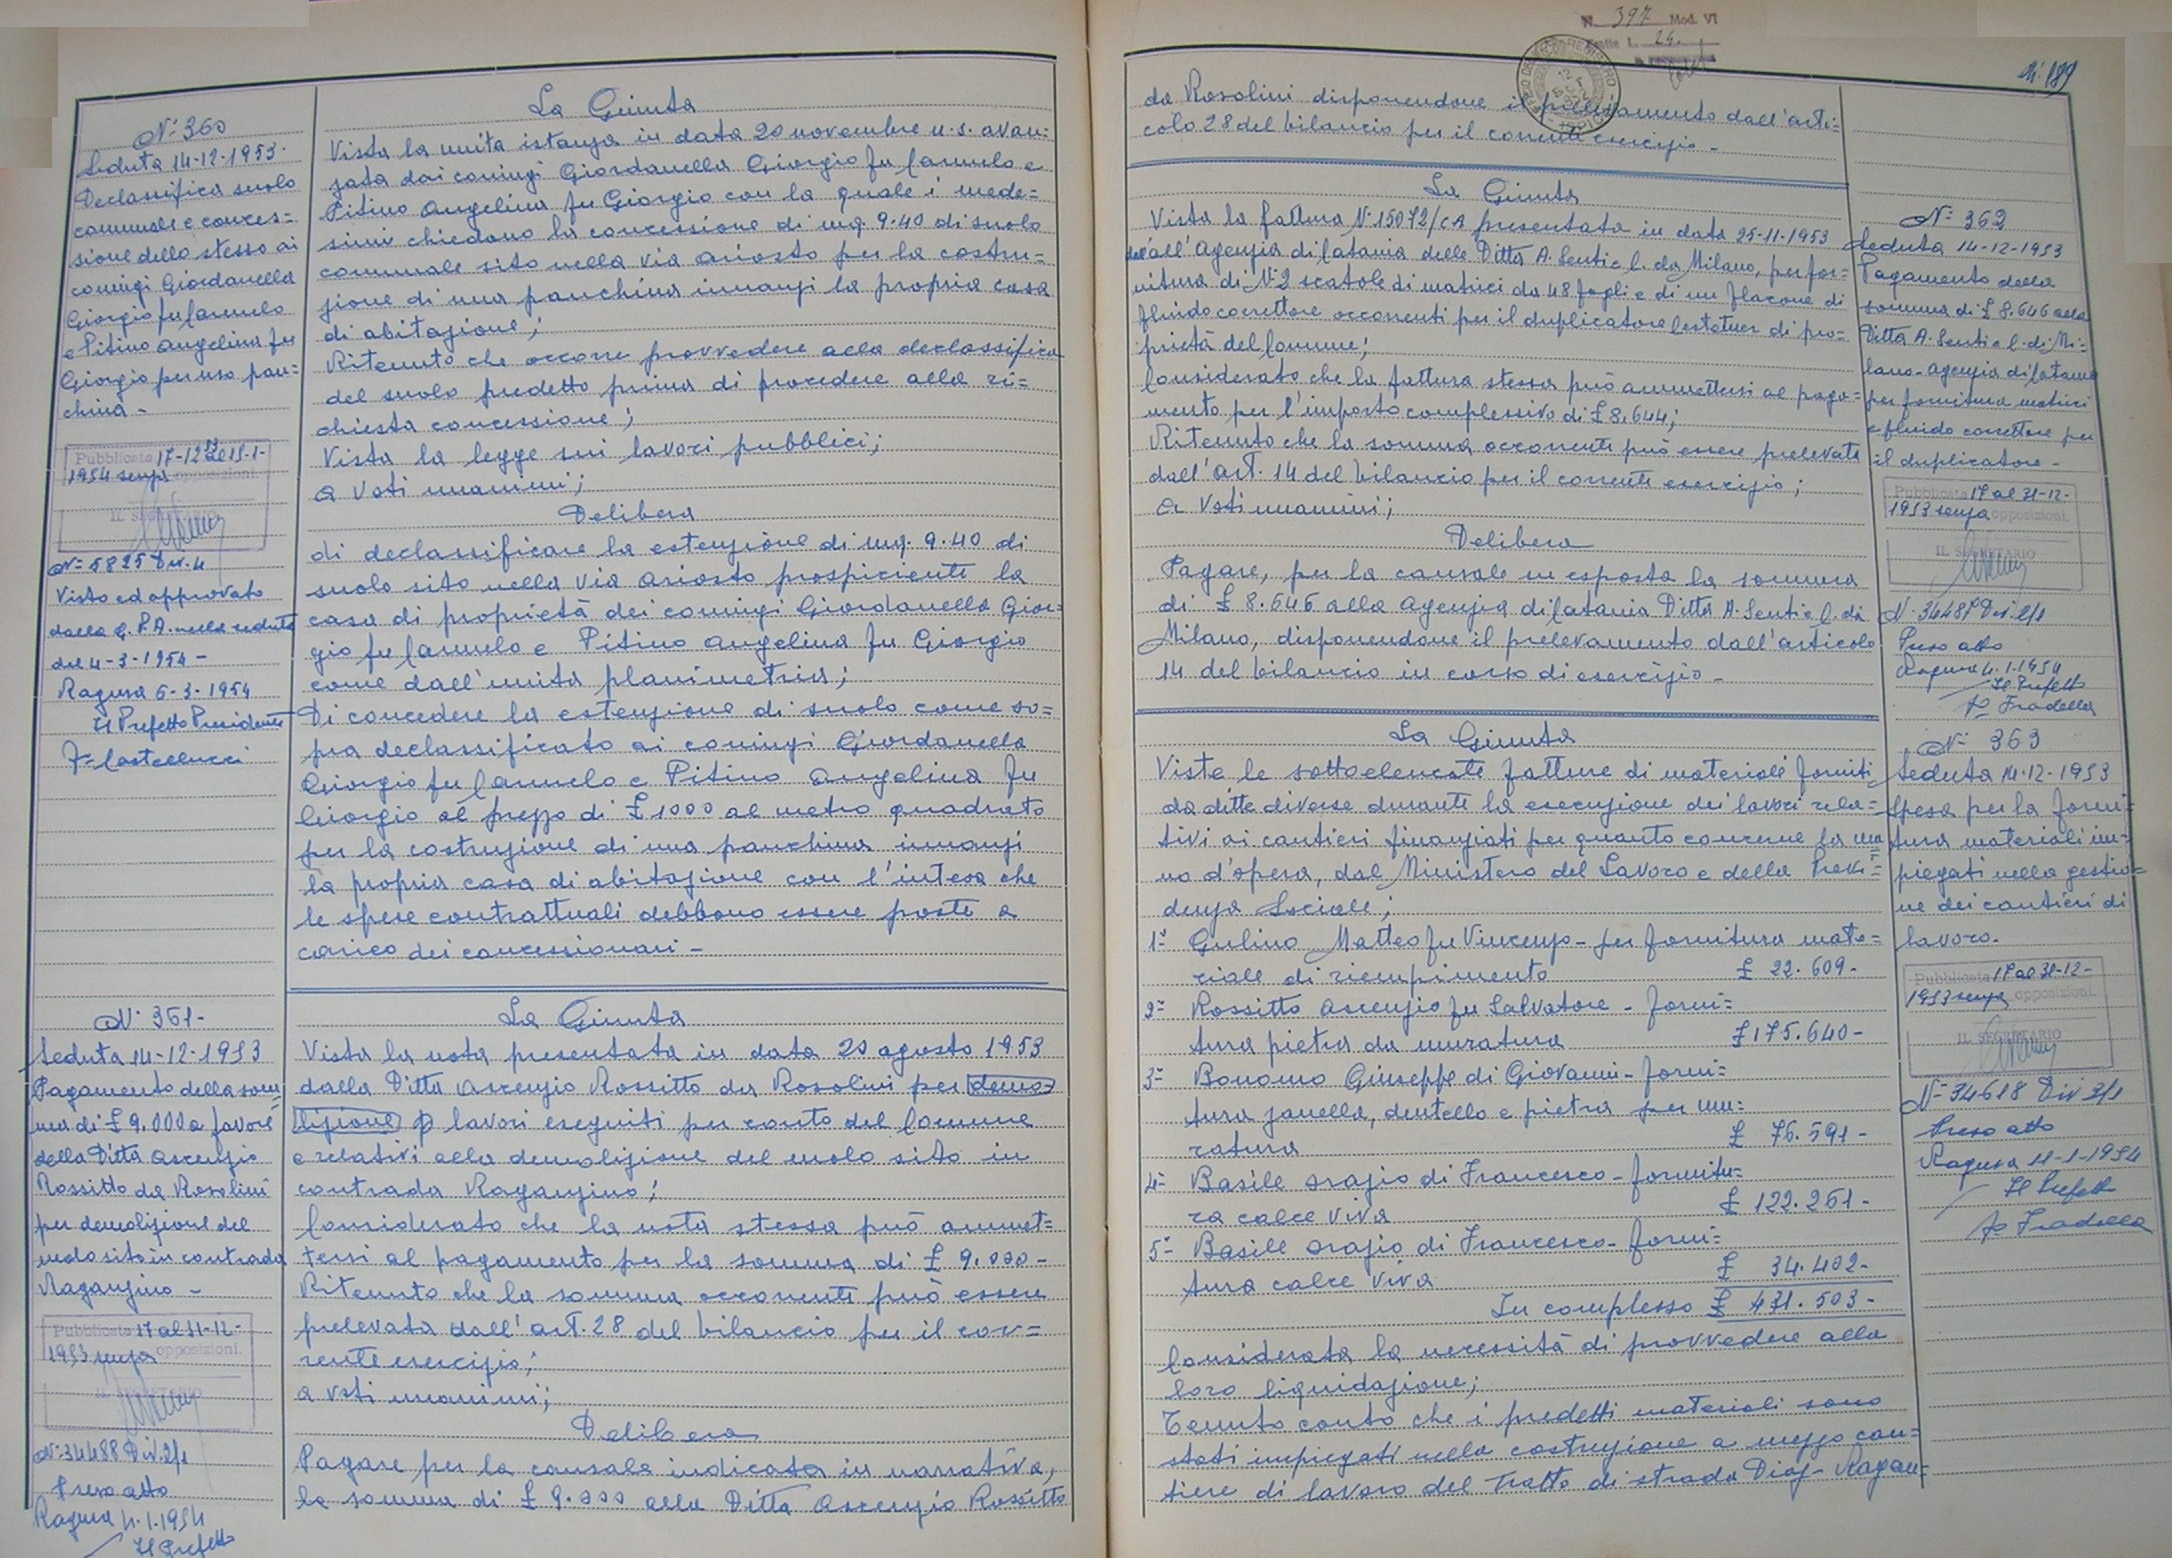 N. 397 Mod. VI
24.
N: 189
N: 360
Seduta 14-12-1953.
Declassifica suolo
comunale e conces=
sione dello stesso ai
coniugi Giordanella
Giorgio fu Carmelo
e Pitino Angelina fu
Giorgio per uso pan=
china -
Pubblicata 17-12-53 al 15-1-
1954 senza opposizioni.
N: 5825 Div. 4
Visto ed approvato
dalla G.P.A. nella seduta
del 4-3-1954 -
Ragusa 6-3-1954
Il Prefetto Presidente
F= Castellucci
La Giunta
Vista la unita istanza in data 20 novembre u.s. avan=
zata dai coniugi Giordanella Giorgio fu Carmelo e
Pitino Angelina fu Giorgio con la quale i mede=
simi chiedono la concessione di mq. 9.40 di suolo
comunale sito nella Via Ariosto per la costru=
zione di una panchina innanzi la propria casa
di abitazione;
Ritenuto che occorre provvedere alla declassifica
del suolo predetto prima di procedere alla ri=
chiesta concessione;
Vista la legge sui lavori pubblici;
a voti unanimi;
Delibera
di declassificare la estenzione di mq. 9.40 di
suolo sito nella Via Ariosto prospiciente la
casa di proprietà dei coniugi Giordanella Gior=
gio fu Carmelo e Pitino Angelina fu Giorgio
come dall'unita planimetria;
Di concedere la estenzione di suolo come so=
pra declassificato ai coniugi Giordanella
Giorgio fu Carmelo e Pitino Angelina fu
Giorgio al prezzo di £ 1000 al metro quadrato
per la costruzione di una panchina innanzi
la propria casa di abitazione con l'intesa che
le spese contrattuali debbono essere poste a
carico dei concessionari -
N: 361-
Seduta 14-12-1953
Pagamento della som=
ma di £ 9.000 a favore
della Ditta Ascenzio
Rossitto da Rosolini
per demolizione del
molo sito in contrada
Raganzino -
Pubblicata 17 al 31-12-
1953 senza opposizioni.
IL SEGRETARIO
N: 34488 Div. 2/1
Preso atto
Ragusa 4.1.1954
Il Prefetto
La Giunta
Vista la nota presentata in data 20 agosto 1953
dalla Ditta Ascenzio Rossitto da Rosolini per demo=
lizione lavori eseguiti per conto del Comune
e relativi alla demolizione del molo sito in
contrada Raganzino;
Considerato che la nota stessa può ammet=
tersi al pagamento per la somma di £ 9.000-
Ritenuto che la somma occorrente può essere
prelevata dall'art. 28 del bilancio per il cor=
rente esercizio;
a voti unanimi;
Delibera
Pagare per la causale indicata in narrativa,
la somma di £ 9.000 alla Ditta Ascenzio Rossitto
da Rosolini disponendone il prelevamento dall'arti=
colo 28 del bilancio per il corrente esercizio -
La Giunta
Vista la fattura N. 15072/CA presentata in data 25-11-1953
dall'Agenzia di Catania della Ditta A. Senti e C. da Milano, per for=
nitura di N: 2 scatole di matrici da 48 fogli e di un flacone di
fluido correttore occorrenti per il duplicatore Gestetner di pro=
prietà del Comune;
Considerato che la fattura stessa può ammettersi al paga=
mento per l'importo complessivo di £ 8.644;
Ritenuto che la somma occorrente può essere prelevata
dall'art. 14 del bilancio per il corrente esercizio;
a voti unanimi;
Delibera
Pagare, per la causale su esposta la somma
di £ 8.646 alla Agenzia di Catania Ditta A. Senti e C. da
Milano, disponendone il prelevamento dall'articolo
14 del bilancio in corso di esercizio -
N: 362
Seduta 14-12-1953
Pagamento della
somma di £ 8.646 alla
Ditta A. Senti e C. di Mi=
lano - Agenzia di Catania
per fornitura matrici
e fluido correttore per
il duplicatore -
Pubblicata 17 al 31-12-
1953 senza opposizioni.
IL SEGRETARIO
N. 34487 Div. 2/1
Preso atto
Ragusa 4.1.1954
Il Prefetto
Fo Fradella
La Giunta
Viste le sottoelencate fatture di materiale forniti
da ditte diverse durante la esecuzione dei lavori rela=
tivi ai cantieri finanziati per quanto concerne la ma=
no d'opera, dal Ministero del Lavoro e della Previ=
denza Sociale;
1= Gulino Matteo fu Vincenzo - per fornitura mate=
riale di riempimento £ 22.609-
2= Rossitto Ascenzio fu Salvatore - forni=
tura pietra da muratura £ 175.640-
3= Bonomo Giuseppe di Giovanni - forni=
tura zanella, dentello e pietra per mu=
ratura £ 76.591-
4= Basile Orazio di Francesco - fornitu=
ra calce viva £ 122.261-
5= Basile Orazio di Francesco - forni=
tura calce viva £ 34.402-
In complesso £ 431.503-
Considerata la necessità di provvedere alla
loro liquidazione;
Tenuto conto che i predetti materiali sono
stati impiegati nella costruzione a mezzo can=
tiere di lavoro del tratto di strada Diaz - Ragan=
N: 363
Seduta 14-12-1953
Spesa per la forni=
tura materiali im=
piegati nella gestio=
ne dei cantieri di
lavoro.
Pubblicata 17 al 31-12-
1953 senza opposizioni.
IL SEGRETARIO
N: 34618 Div 2/1
Preso atto
Ragusa 11-1-1954
Il Prefetto
Fo Fradella